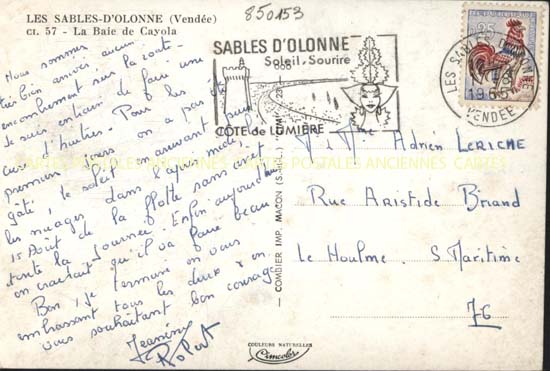 850153
LES SABLES-D'OLONNE (Vendée)
ct. 57 - La Baie de Cayola
SABLES D'OLONNE
Soleil, Sourire
CÔTE de LUMIÈRE
LES SABLES D'OLONNE
1965
VENDEE
25
Nous sommes
bien arrivés, aucun
encombrement sur la route.
Je suis en train de faire une
cure d'huîtres. Pour les
premiers jours on a pas été
gâté, le soleil
les nuages dans l'après midi.
15 Août de la flotte sans arrêt
toute la journée. Enfin aujourd'hui
on croirait qu'il va faire beau
Bon, je termine en vous
embrassant tous les deux & en
vous souhaitant bon courage
Jeanine
Robert
Mme Adrien LERICHE
Rue Aristide Briand
Le Houlme S. Maritime
76
COMBIER IMP. MACON
CARTES POSTALES ANCIENNES
COULEURS NATURELLES
Cimcolor